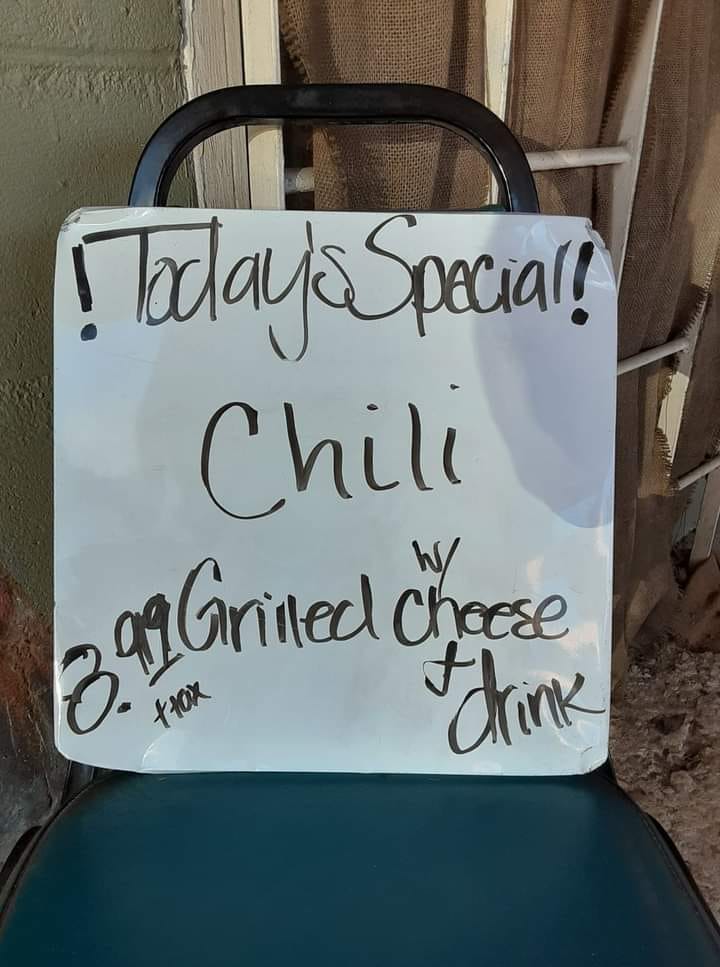 ! Today's Special!
Chili
w/
Grilled cheese
8.99 + drink
+ tax